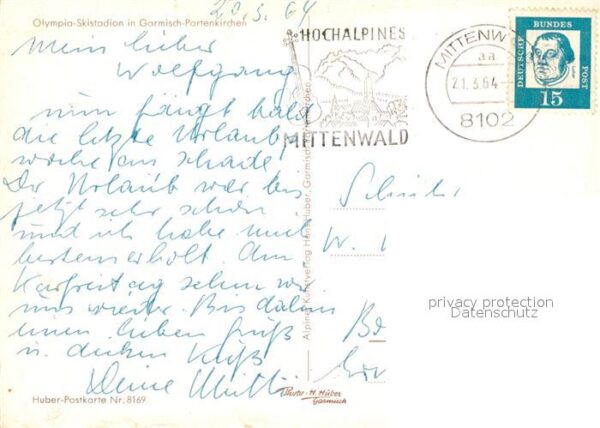 Olympia-Skistadion in Garmisch-Partenkirchen
20.3.64
Mein lieber
Wolfgang,
nun fängt bald
die letzte Urlaubs
woche an schade
Der Urlaub war bis
jetzt sehr schön
und ich habe mich
bestens erholt. Am
Karfreitag sehen wir
uns wieder. Bis dahin
einen lieben Gruß
u. dicken Kuß
Deine Mutti
Huber-Postkarte Nr. 8169
HOCHALPINES
MITTENWALD
MITTENW
aa
21.3.64
8102
DEUTSCHE BUNDES POST
15
Alpine Kunstverlag Hans Huber, Garmisch-Partenkirchen
Schüler
W.
privacy protection
Datenschutz
Photo-H. Huber
Garmisch